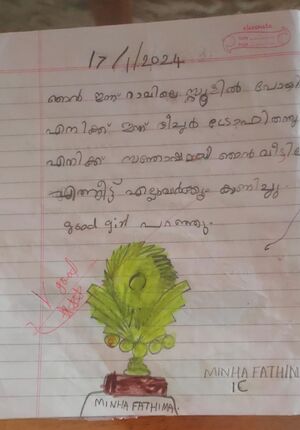 classmate
17/1/2024
ഞാൻ ഇന്ന് രാവിലെ സ്കൂളിൽ പോയി
എനിക്ക് ഇന്ന് ടീച്ചർ ട്രോഫി തന്നു
എനിക്ക് സന്തോഷമായി ഞാൻ വീട്ടിലെ
എല്ലാവർക്കും കാണിച്ചു.
good girl പറഞ്ഞു.
good
MINHA FATHIMA
MINHA FATHIN
1C